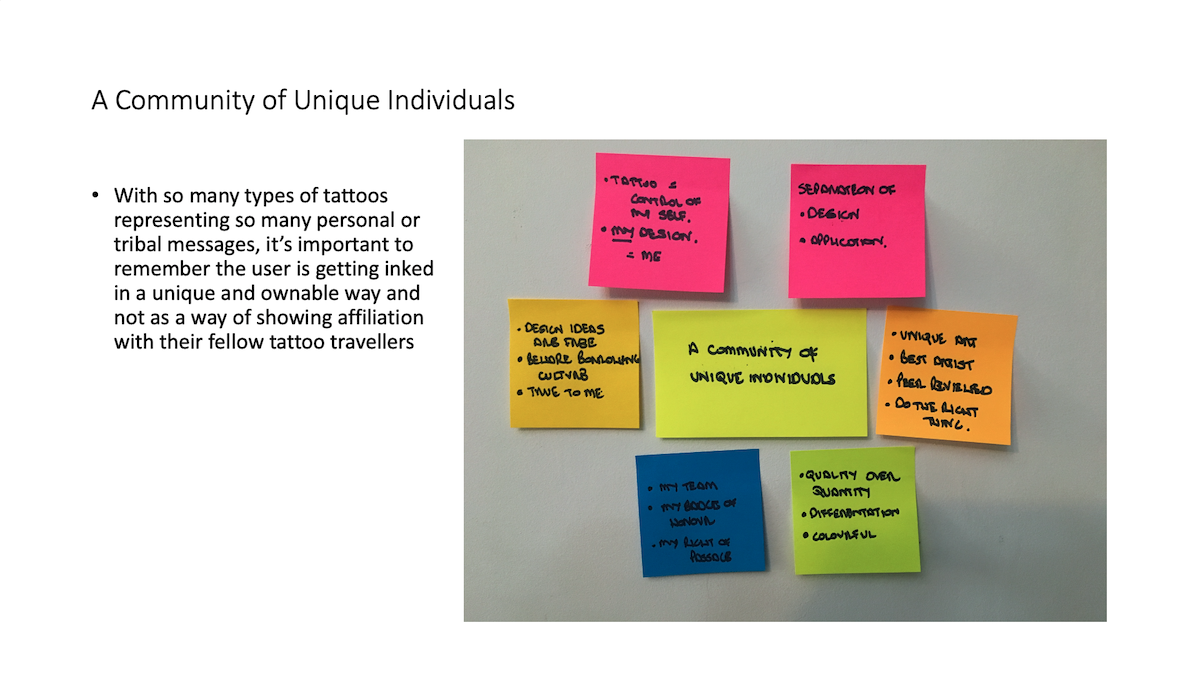 A Community of Unique Individuals
• With so many types of tattoos
representing so many personal or
tribal messages, it’s important to
remember the user is getting inked
in a unique and ownable way and
not as a way of showing affiliation
with their fellow tattoo travellers
• TATTOO =
CONTROL OF
MY SELF.
• MY DESIGN.
= ME
SEPARATION OF
• DESIGN
• APPLICATION.
• DESIGN IDEAS
ARE FREE
• BEWARE BORROWING
CULTURE
• TRUE TO ME
A COMMUNITY OF
UNIQUE INDIVIDUALS
• UNIQUE ART
• BEST ARTIST
• PEER REVIEWED
• DO THE RIGHT
THING.
• MY TEAM
• MY BADGE OF
HONOUR
• MY RIGHT OF
PASSAGE
• QUALITY OVER
QUANTITY
• DIFFERENTATION
• COLOURFUL